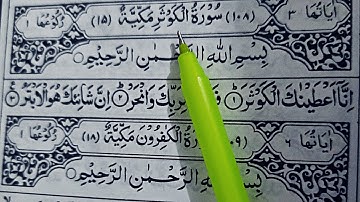 اٰيَاتُهَا ٣ (١٠٨) سُوْرَةُ الْكَوْثَرِ مَكِّيَّةٌ (١٥) رُكُوْعُهَا ١
بِسْمِ اللّٰهِ الرَّحْمٰنِ الرَّحِيْمِ
اِنَّاۤ اَعْطَيْنٰكَ الْكَوْثَرَ ؕ وَانْحَرْ ؕ اِنَّ شَانِئَكَ هُوَ الْاَبْتَرُ
اٰيَاتُهَا ٦ سُوْرَةُ الْكٰفِرُوْنَ مَكِّيَّةٌ (١٨) رُكُوْعُهَا ١
بِسْمِ الرَّحْمٰنِ الرَّحِيْمِ